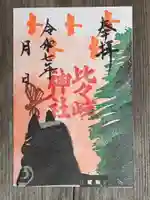 奉拝
比々岐神社
令和七年
月 日